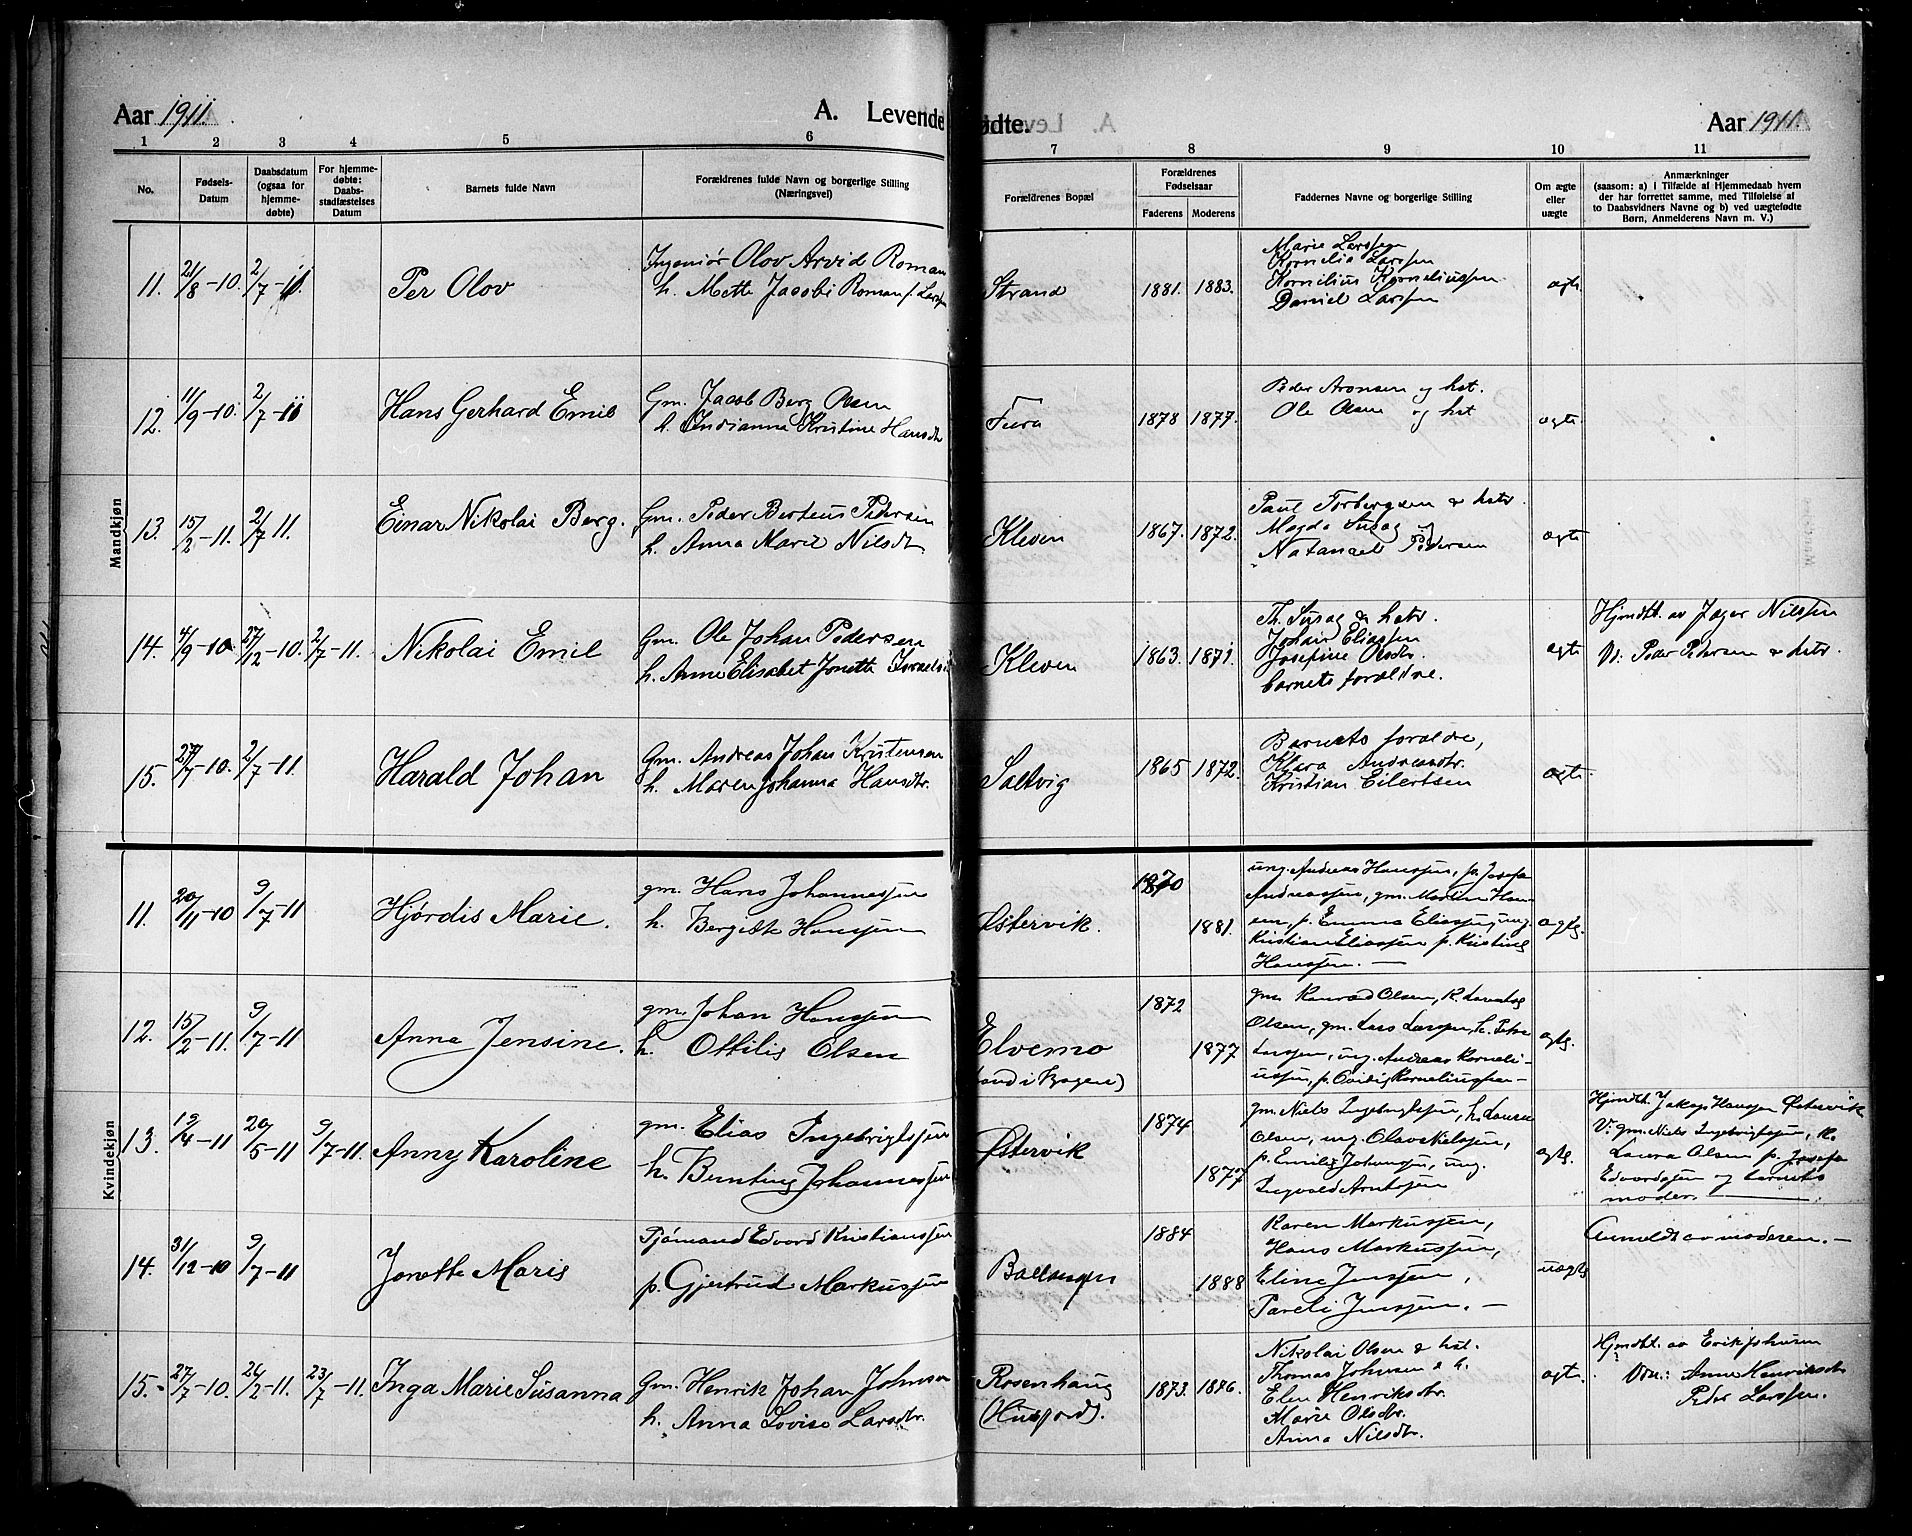 Aar 1911. A. Levendefødte. Aar 1911.
1 2 3 4 5 6 7 8 9 10 11
No. Fødsels-Datum Daabsdatum (ogsaa for hjemme-døbte) For hjemme-døbte: Daabs-stadfæstelses Datum Barnets fulde Navn Forældrenes fulde Navn og borgerlige Stilling (Næringsvei) Forældrenes Bopæl Forældrenes Fødselsaar Faderens Moderens Faddernes Navne og borgerlige Stilling Om ægte eller uægte Anmærkninger
(saasom: a) i Tilfælde af Hjemmedaab hvem
der har forrettet samme, med Tilføielse af
to Daabsvidners Navne og b) ved uægtefødte
Børn, Anmelderens Navn m. V.)
Mandkjøn
11. 21/8-10. 2/7-11. Per Olov
Ingeniør Olov Arvid Roman
h. Mette Jacobi Roman f. Larssen
Strand 1881. 1883.
Marie Larssen
Kornelia Larssen
Kornilius Korneliussen
Daniel Larssen
ægte
12. 11/9-10. 2/7-11 Hans Gerhard Emil
Gm. Jacob Berg Olsen
h. Indianna Kristine Hansdtr
Furu 1878 1877.
Peder Aronsen og hst.
Ole Olsen og hst
ægte
13. 15/2-11. 2/7 11. Einar Nikolai Berg.
Gm. Peder Berteus Pedersen
h. Anna Marie Nilsdtr
Kleven 1867. 1872.
Paul Torbergsen & hstr.
Magda
Natanael Pedersen
ægte
14. 4/9-10 27/12-10. 2/7-11. Nikolai Emil
Gm. Ole Johan Pedersen
h. Anne Elisabet Jonette
Kleven 1863. 1871.
Th. & hstr.
Johan Eliassen
Josefine Olsdtr.
barnets forældre.
ægte
Hjmdbt. av Jæger Nilssen
V: Peder Pedersen & hstr.
15. 27/7-10. 2/7-11. Harald Johan
Gm. Andreas Johan Kristensen
h. Maren Johanna Hansdtr.
Saltvig 1865 1872.
Barnets forældre,
Klara Andreasdtr.
Kristian Eilertsen
ægte
Kvindekjøn
11. 20/11-10 9/7-11 Hjørdis Marie.
gm. Hans Johannessen
h. Bergitte Hanssen
Østervik. 1870 1881.
ung. Andreas Hanssen, p. Josefa
Andreassen, gm. Martin Han-
sen, p. Emma Eliassen, ung.
Kristian Eliassen p. Kristine
Hanssen. —
ægte.
12. 15/2-11. 9/7-11 Anna Jensine.
gm. Johan Hanssen
h. Ottilie Olsen
Elvemo
1872 1877
gm. Konrad Olsen, K.
Olsen, gm. Lars Larssen, h. Petra
Larssen, ung. Andreas Korneli-
ussen, p. Korneliussen —
ægte.
13. 19/4-11 20/5-11 9/7-11. Anny Karoline
gm. Elias Ingebrigtsen
h. Berntine Johannessen
Østervik 1874 1877
gm. Niels Ingebrigtsen, h. Laura
Olsen, ung. Olav Nielssen,
p. Emilie Johansen, ung.
Ingvald Arntsen
ægte.
Hjmdbt. Jakop Hanssen Østervik
V: gm. Niels Ingebrigtsen, K.
Laura Olsen p. Josefa
Edvardsen og barnets
moder. —
14. 31/12-10 9/7-11 Jonette Marie
Edvard Kristianssen
p. Gjertrud Markussen
Ballangen 1884 1888
Karen Markussen,
Hans Markussen,
Eline Jenssen,
Pareli Jenssen. —
uægte
Anmeldt av moderen. —
15. 27/7-10. 26/2-11. 23/7-11. Inga Marie Susanna
Gm. Henrik Johan Johnsen
h. Anna Lovise Larsdtr.
Rosenhaug
(Husfjord).
1873. 1876.
Nikolai Olsen & hst.
Thomas Johnsen & h.
Elen Henriksdtr.
Marie Olsdtr.
Anna Nilsdtr
ægte.
Hjmdbt. av Erik Johnsen
Vdn.: Anne Henriksdtr
Peder Larssen.